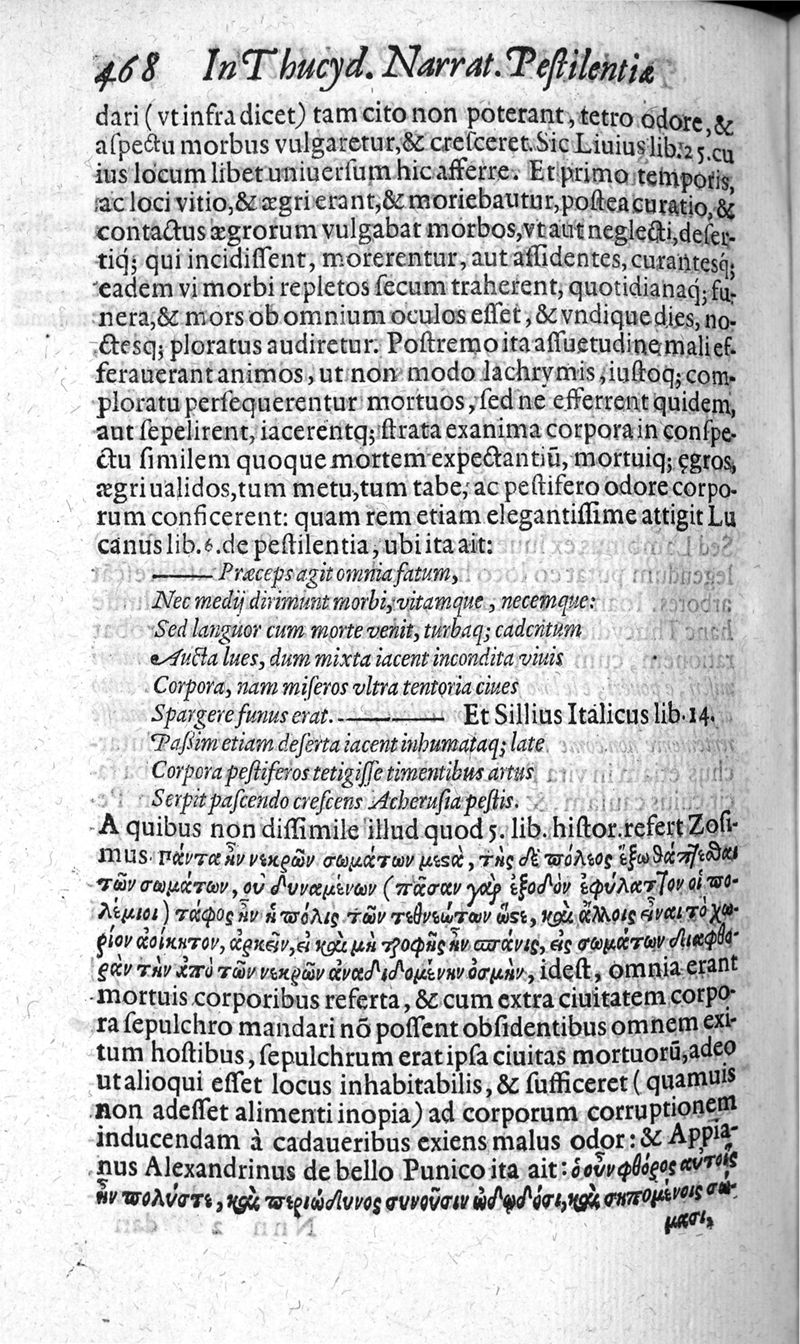 468 In Thucyd. Narrat. Pestilentiæ
dari ( vt infra dicet) tam cito non poterant, tetro odore, &
aſpectu morbus vulgaretur, & creſceret. Sic Liuius lib. 25. cu
ius locum libet uniuerſum hic afferre. Et primo temporis,
ac loci vitio, & ægri erant, & moriebautur, poſtea curatio, &
contactus ægrorum vulgabat morbos, vt aut neglecti, deſer-
tiq; qui incidiſſent, morerentur, aut aſſidentes, curantesq;
eadem vi morbi repletos ſecum traherent, quotidianaq; fu-
nera, & mors ob omnium oculos eſſet, & vndique dies, no-
ctesq; ploratus audiretur. Poſtremo ita aſſuetudine mali ef-
ferauerant animos, ut non modo lachrymis, iuſtoq; com-
ploratu perſequerentur mortuos, ſed ne efferrent quidem,
aut ſepelirent, iacerentq; ſtrata exanima corpora in conſpe-
ctu ſimilem quoque mortem expectantiũ, mortuiq; ęgros,
ægri ualidos, tum metu, tum tabe, ac peſtifero odore corpo-
rum conficerent: quam rem etiam elegantiſſime attigit Lu
canus lib. 6. de peſtilentia, ubi ita ait:
——— Præceps agit omnia fatum,
Nec medij dirimunt morbi, vitamque, necemque:
Sed languor cum morte venit, turbaq; cadentum
Aucta lues, dum mixta iacent incondita viuis
Corpora, nam miſeros vltra tentoria ciues
Spargere funus erat. ——— Et Sillius Italicus lib. 14.
Paſſim etiam deſerta iacent inhumataq; late
Corpora peſtiferos tetigiſſe timentibus artus
Serpit paſcendo creſcens Acheruſia peſtis.
A quibus non diſſimile illud quod 5. lib. hiſtor. refert Zoſi-
mus πάντα ἦν νεκρῶν σωμάτων μεϛὰ, τῆς δὲ πόλεος ἔξω θάπτεσθαι
τῶν σωμάτων, οὐ δυναμένων (πᾶσαν γὰρ ἐξοδὸν ἐφύλαττον οἱ πο-
λέμιοι) τάφος ἦν ἡ πόλις τῶν τεθνεώτων ὥϛε, καὶ ἄλλοις εἶναι τὸ χω-
ρίον ἀοίκητον, ἀρκεῖν, εἰ καὶ μὴ τροφῆς ἦν σπάνις, εἰς σωμάτων διαφθο-
ρὰν τὴν ἀπὸ τῶν νεκρῶν ἀναδιδομένην ὀσμὴν, ideſt, omnia erant
mortuis corporibus referta, & cum extra ciuitatem corpo-
ra ſepulchro mandari nõ poſſent obſidentibus omnem exi-
tum hoſtibus, ſepulchrum erat ipſa ciuitas mortuorũ, adeo
ut alioqui eſſet locus inhabitabilis, & ſufficeret ( quamuis
non adeſſet alimenti inopia) ad corporum corruptionem
inducendam à cadaueribus exiens malus odor: & Appia-
nus Alexandrinus de bello Punico ita ait: ὁ οὖν φθόρος αὐτοῖς
ἦν πολύς τε, καὶ περιώδυνος συνοῦσιν καὶ σηπομένοις σώ-
μασι,